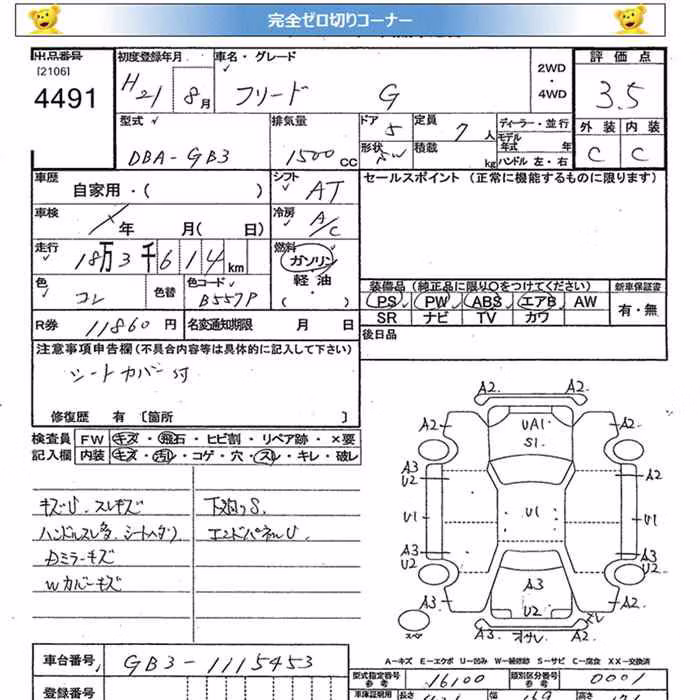 完全ゼロ切りコーナー
出品番号 初度登録年月 車名・グレード 2WD ・ 4WD 評価点
[2106]
4491 H21 8月 フリード G 3.5
型式 排気量 ドア 定員 ディーラー・並行 外装 内装
DBA-GB3 1500 CC 5 7人 モデル年式 年 C C
形状 積載 kg ハンドル 左・右
車歴 自家用・( ) シフト AT セールスポイント (正常に機能するものに限ります)
車検 年 月( 日) 冷房 A/C
走行 18万3千614km 燃料 ガソリン・軽油・( )
色 色替 色コード B557P
装備品 (純正品に限り○をつけてください) 新車保証書
PS PW ABS エアB AW 有・無
SR ナビ TV カワ
R券 11860円 名変通知期限 月 日 後日品
注意事項申告欄(不具合内容等は具体的に記入して下さい)
シートカバー付
修復歴 有 [箇所 ]
検査員 FW キズ・飛石・ヒビ割・リペア跡・×要
記入欄 内装 キズ・汚レ・コゲ・穴・スレ・キレ・破レ
キズU.スレキズ 下廻りS.
ハンドルスレ多.シートヘタリ エンドパネルU
Dミラーキズ
Wカバーキズ
A2. A2.
A2. UA1 A2.
S1
A3 U2 A2
U1 U1 U1
A3 U2 A3 U2
A3
A3. U2 A2.
スペア A3. スレ A2.
A-キズ E-エクボ U-凹み W-補修跡 S-サビ C-腐食 XX-交換済
車台番号 GB3-1115453 型式指定番号 参考 16100 類別区分番号 参考 0001
登録番号 車庫証明用 長さ